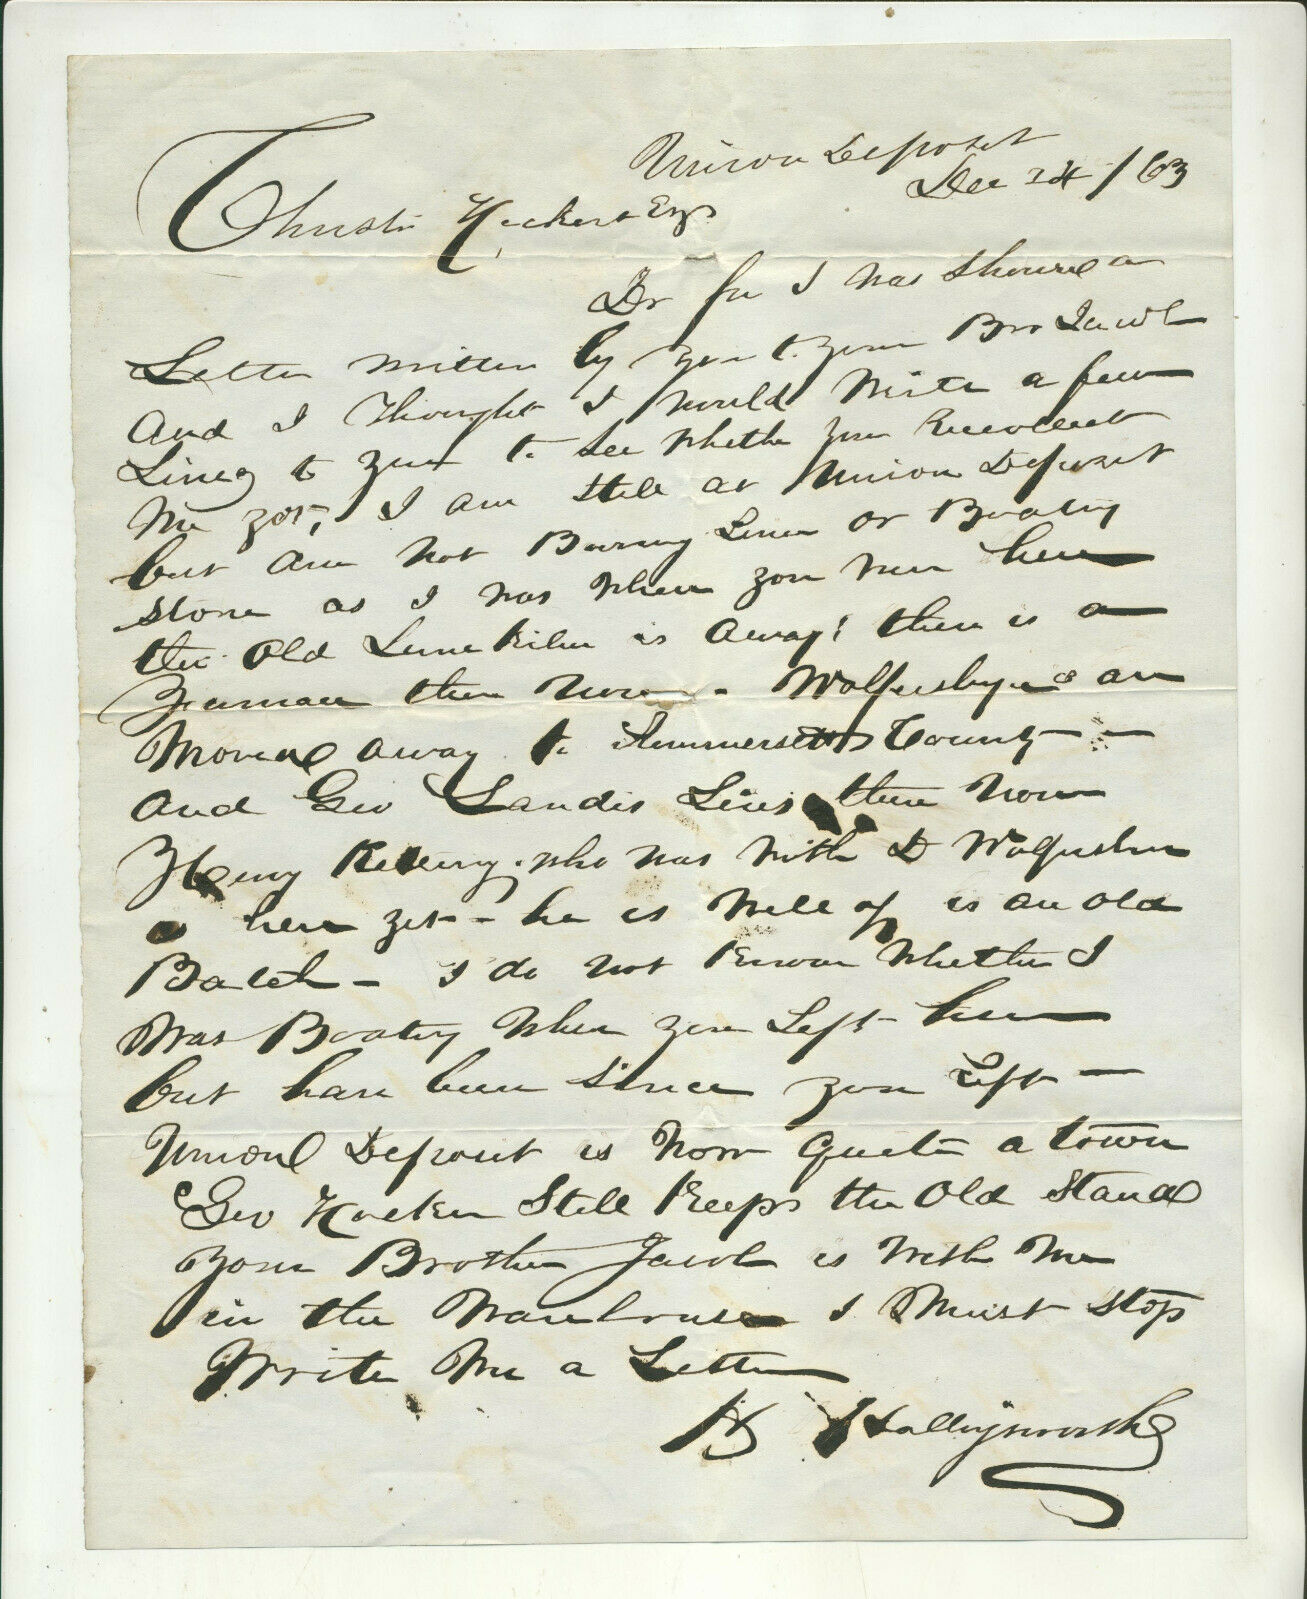 Union Deposit
Dec 24 / 63
Christ Heckert Esq
Dr Sir I was showed a
Letter written by you to your Bro Jacob
And I Thought I would write a few
Lines to you to see whether you Reccolect
Me yet, I am still at Union Deposit
but am not Burning Lime or Boating
stone as I was when you was here
the Old Lime Kiln is away; there is a
German there now - Wolfersberger
Moved away to Sommersett County -
And Geo Landis Lives there now
Henry who was with D Wolfersber
is here yet - he is well of is an old
Batch - I do not know whether I
was Boating when you Left here
but have been since you Left -
Union Deposit is now quite a town
Geo Hocker Still Keeps the Old Stand
Your Brother Jacob is with me
in the Warehouse I Must stop
Write Me a Letter
Hollingsworth